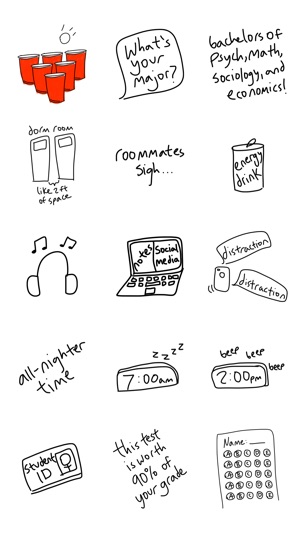 What's
your
major?
bachelors of
Psych, Math,
Sociology, and
economics!
dorm room
like 2 ft
of space
roommates
sigh...
energy
drink
notes
Social
media
distraction
distraction
all-nighter
time
z z z z
7:00am
beep beep
beep
2:00pm
Student
ID
this test
is worth
90% of
your grade
Name:
A B C D E
A B C D E
A B C D E
A B C D E
A B C D E